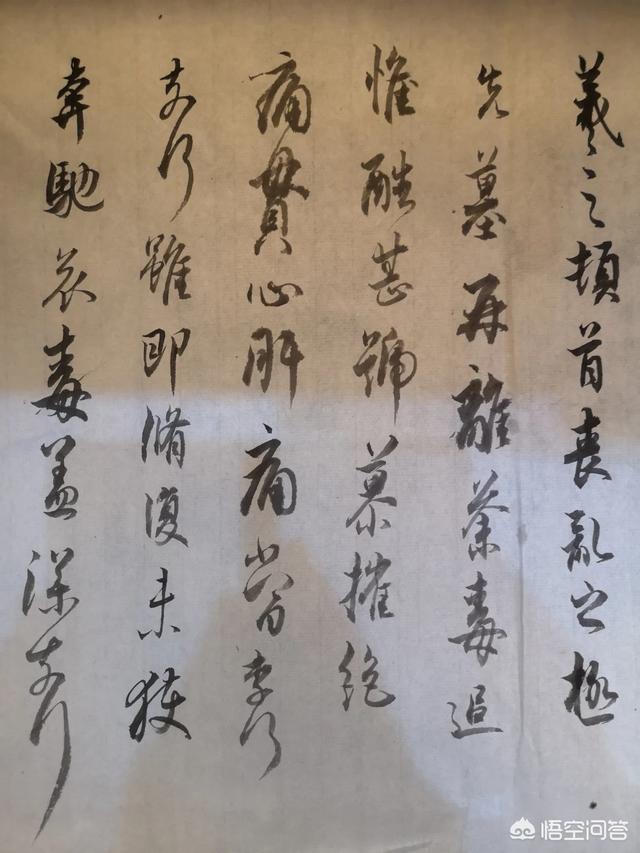 羲之頓首喪亂之極
先墓再離荼毒追
惟酷甚號慕摧絶
痛貫心肝痛當柰何
柰何雖即脩復未獲
奔馳哀毒益深柰何
悟空问答